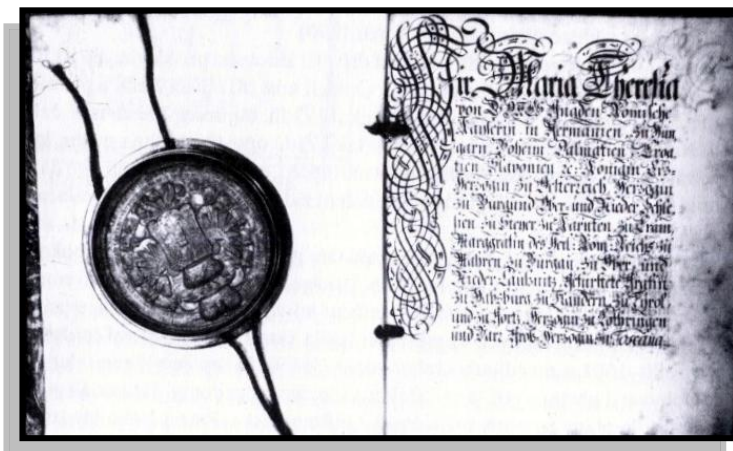 Wir Maria Theresia
von GOTTES Gnaden Römische
Kayserin in Germanien, zu Hun
garn, Böheim, Dalmatien, Croa
tien, Slavonien ꝛc. Königin, Ertz
Hertzogin zu Oesterreich, Hertzogin
zu Burgund, Ober- und Nieder Schle
sien, zu Steyer, zu Kärnten, zu Crain,
Marggräfin des Heil. Röm. Reichs, zu
Mähren, zu Burgau, zu Ober- und
Nieder Laußnitz, Gefürstete Gräfin
zu Habspurg, zu Flandern, zu Tyrol,
und zu Görtz, Hertzogin zu Lothringen
und Barr, Groß-Hertzogin zu Toscana,